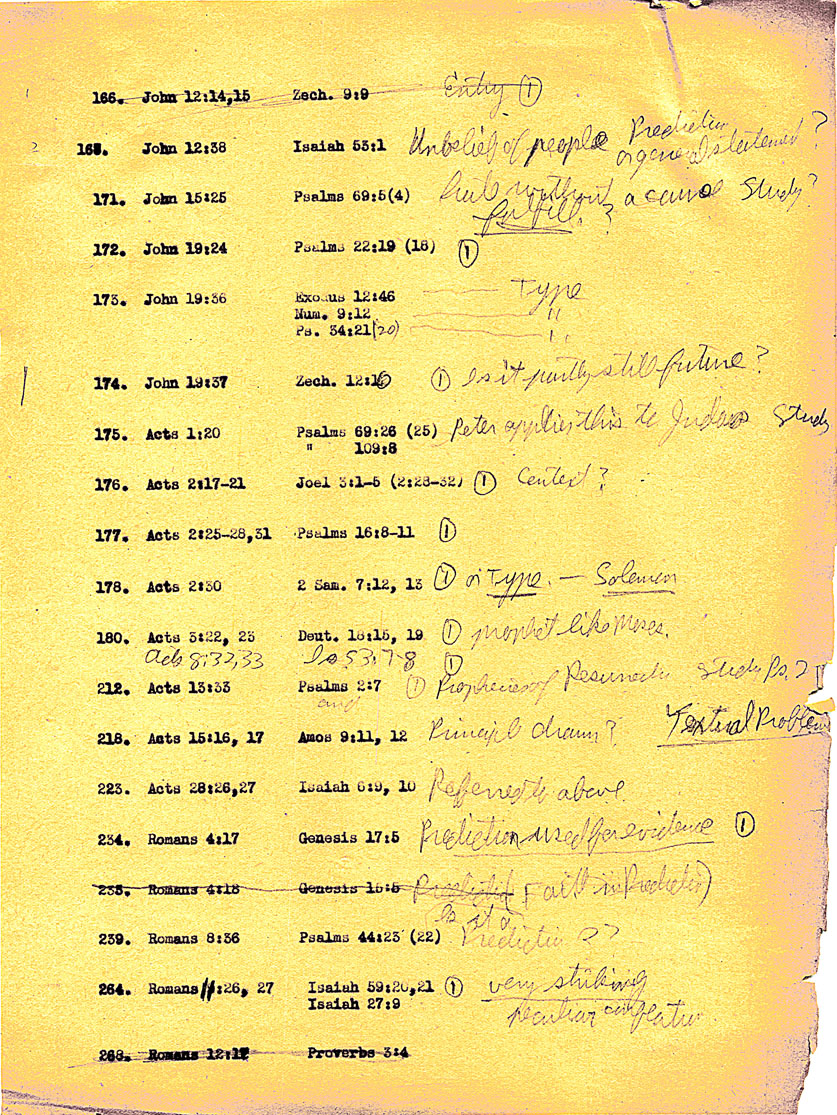 166. John 12:14,15 Zech. 9:9 Entry 1
168. John 12:38 Isaiah 53:1 Unbelief of people Prediction
or general statement?
171. John 15:25 Psalms 69:5(4) hate without a cause Study?
fulfill. ?
172. John 19:24 Psalms 22:19 (18) 1
173. John 19:36 Exodus 12:46 Type
Num. 9:12 "
Ps. 34:21(20) "
174. John 19:37 Zech. 12:10 1 Is it partly still future?
175. Acts 1:20 Psalms 69:26 (25) Peter applies this to Judas Study
" 109:8
176. Acts 2:17-21 Joel 3:1-5 (2:28-32) 1 Context?
177. Acts 2:25-28,31 Psalms 16:8-11 1
178. Acts 2:30 2 Sam. 7:12, 13 1 or Type. — Solomon
180. Acts 3:22, 23 Deut. 18:15, 19 1 prophet like Moses.
Acts 8:32,33 Is 53:7-8 1
212. Acts 13:33 Psalms 2:7 1 Prophecies of Resurrectn Study Ps. 2
and
218. Acts 15:16, 17 Amos 9:11, 12 Principle drawn? Textual Problem
223. Acts 28:26,27 Isaiah 6:9, 10 Referred to above.
234. Romans 4:17 Genesis 17:5 Prediction used for evidence 1
235. Romans 4:18 Genesis 15:5 Faith in Prediction)
Is it a
239. Romans 8:36 Psalms 44:23 (22) Prediction ??
264. Romans 11:26, 27 Isaiah 59:20,21 1 very striking
Isaiah 27:9 peculiar
268. Romans 12:17 Proverbs 3:4